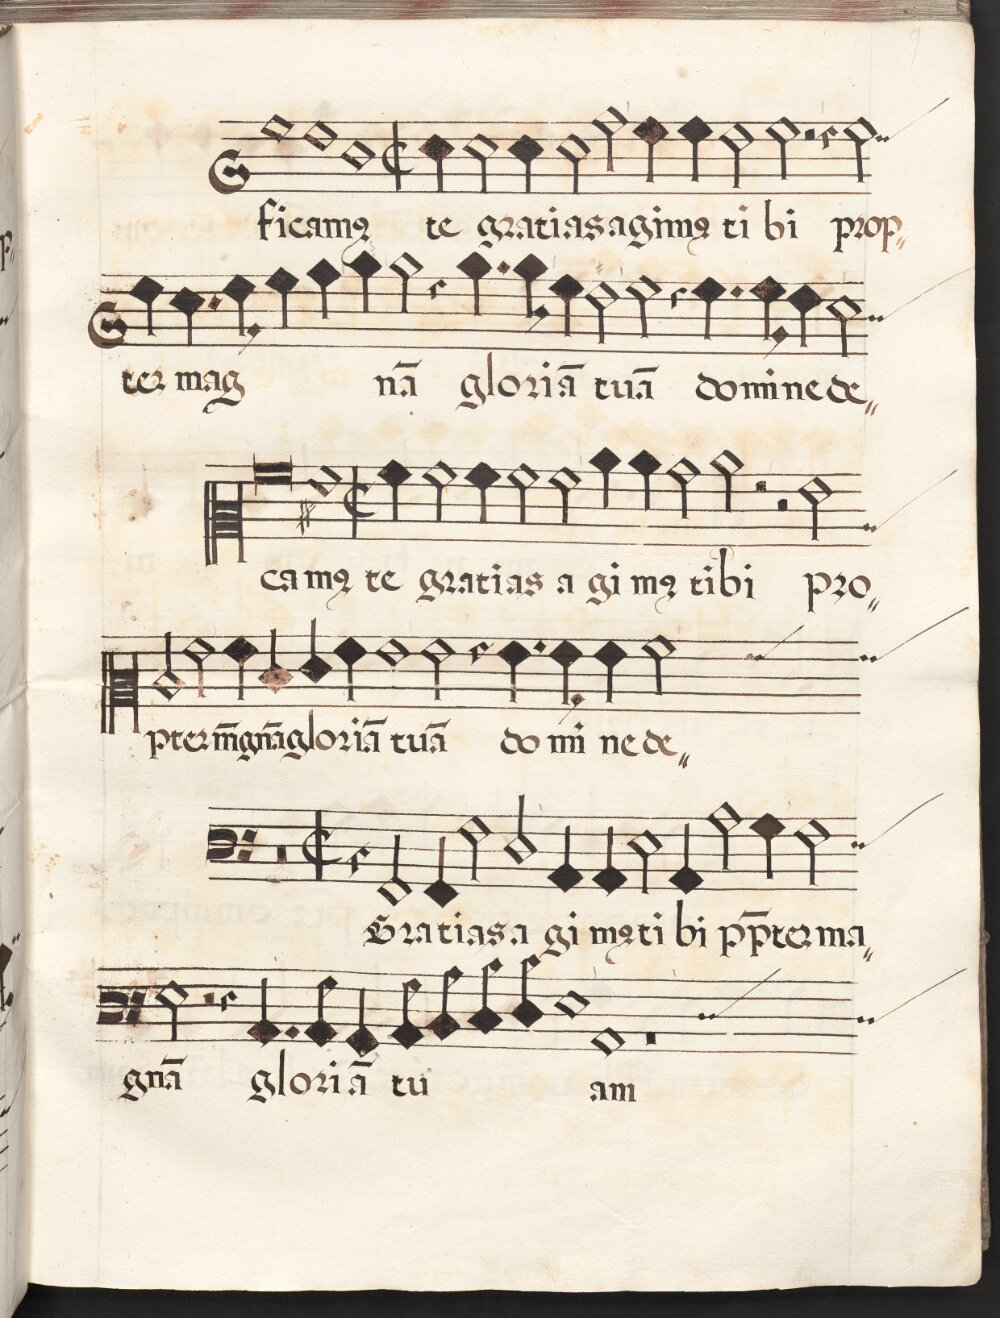 ficamꝰ te gratias agimꝰ ti bi prop„
ter mag nā gloriā tuā domine de„
camꝰ te gratias a gi mꝰ tibi pro„
pter m̄gnā gloriā tuā do mi ne de„
Gratias a gi mꝰ ti bi pp̄ter ma„
gnā gloriā tu am